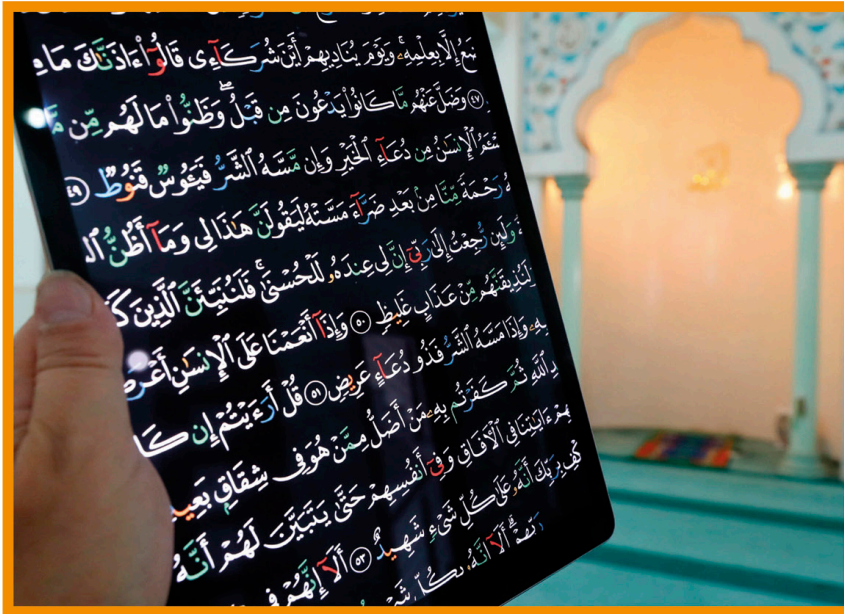 إِلَّا بِعِلْمِهِۦ ۚ وَيَوْمَ يُنَادِيهِمْ أَيْنَ شُرَكَآءِى قَالُوٓا۟ ءَاذَنَّـٰكَ مَا مِ
٤٧ وَضَلَّ عَنْهُم مَّا كَانُوا۟ يَدْعُونَ مِن قَبْلُ ۖ وَظَنُّوا۟ مَا لَهُم مِّن مَّ
ٱلْإِنسَـٰنُ مِن دُعَآءِ ٱلْخَيْرِ وَإِن مَّسَّهُ ٱلشَّرُّ فَيَـُٔوسٌ قَنُوطٌ ٤٩
هُ رَحْمَةً مِّنَّا مِنۢ بَعْدِ ضَرَّآءَ مَسَّتْهُ لَيَقُولَنَّ هَـٰذَا لِى وَمَآ أَظُنُّ ٱل
وَلَئِن رُّجِعْتُ إِلَىٰ رَبِّىٓ إِنَّ لِى عِندَهُۥ لَلْحُسْنَىٰ ۚ فَلَنُنَبِّئَنَّ ٱلَّذِينَ كَ
لَنُذِيقَنَّهُم مِّنْ عَذَابٍ غَلِيظٍ ٥٠ وَإِذَآ أَنْعَمْنَا عَلَى ٱلْإِنسَـٰنِ أَعْرَضَ
بِهِۦ وَإِذَا مَسَّهُ ٱلشَّرُّ فَذُو دُعَآءٍ عَرِيضٍ ٥١ قُلْ أَرَءَيْتُمْ إِن كَا
دِ ٱللَّهِ ثُمَّ كَفَرْتُم بِهِۦ مَنْ أَضَلُّ مِمَّنْ هُوَ فِى شِقَاقٍۭ بَعِيدٍ
هِمْ ءَايَـٰتِنَا فِى ٱلْـَٔافَاقِ وَفِىٓ أَنفُسِهِمْ حَتَّىٰ يَتَبَيَّنَ لَهُمْ أَنَّهُ
كْفِ بِرَبِّكَ أَنَّهُۥ عَلَىٰ كُلِّ شَىْءٍ شَهِيدٌ ٥٣ أَلَآ إِنَّهُمْ فِى
رَبِّهِمْ ۗ أَلَآ إِنَّهُۥ بِكُلِّ شَىْ